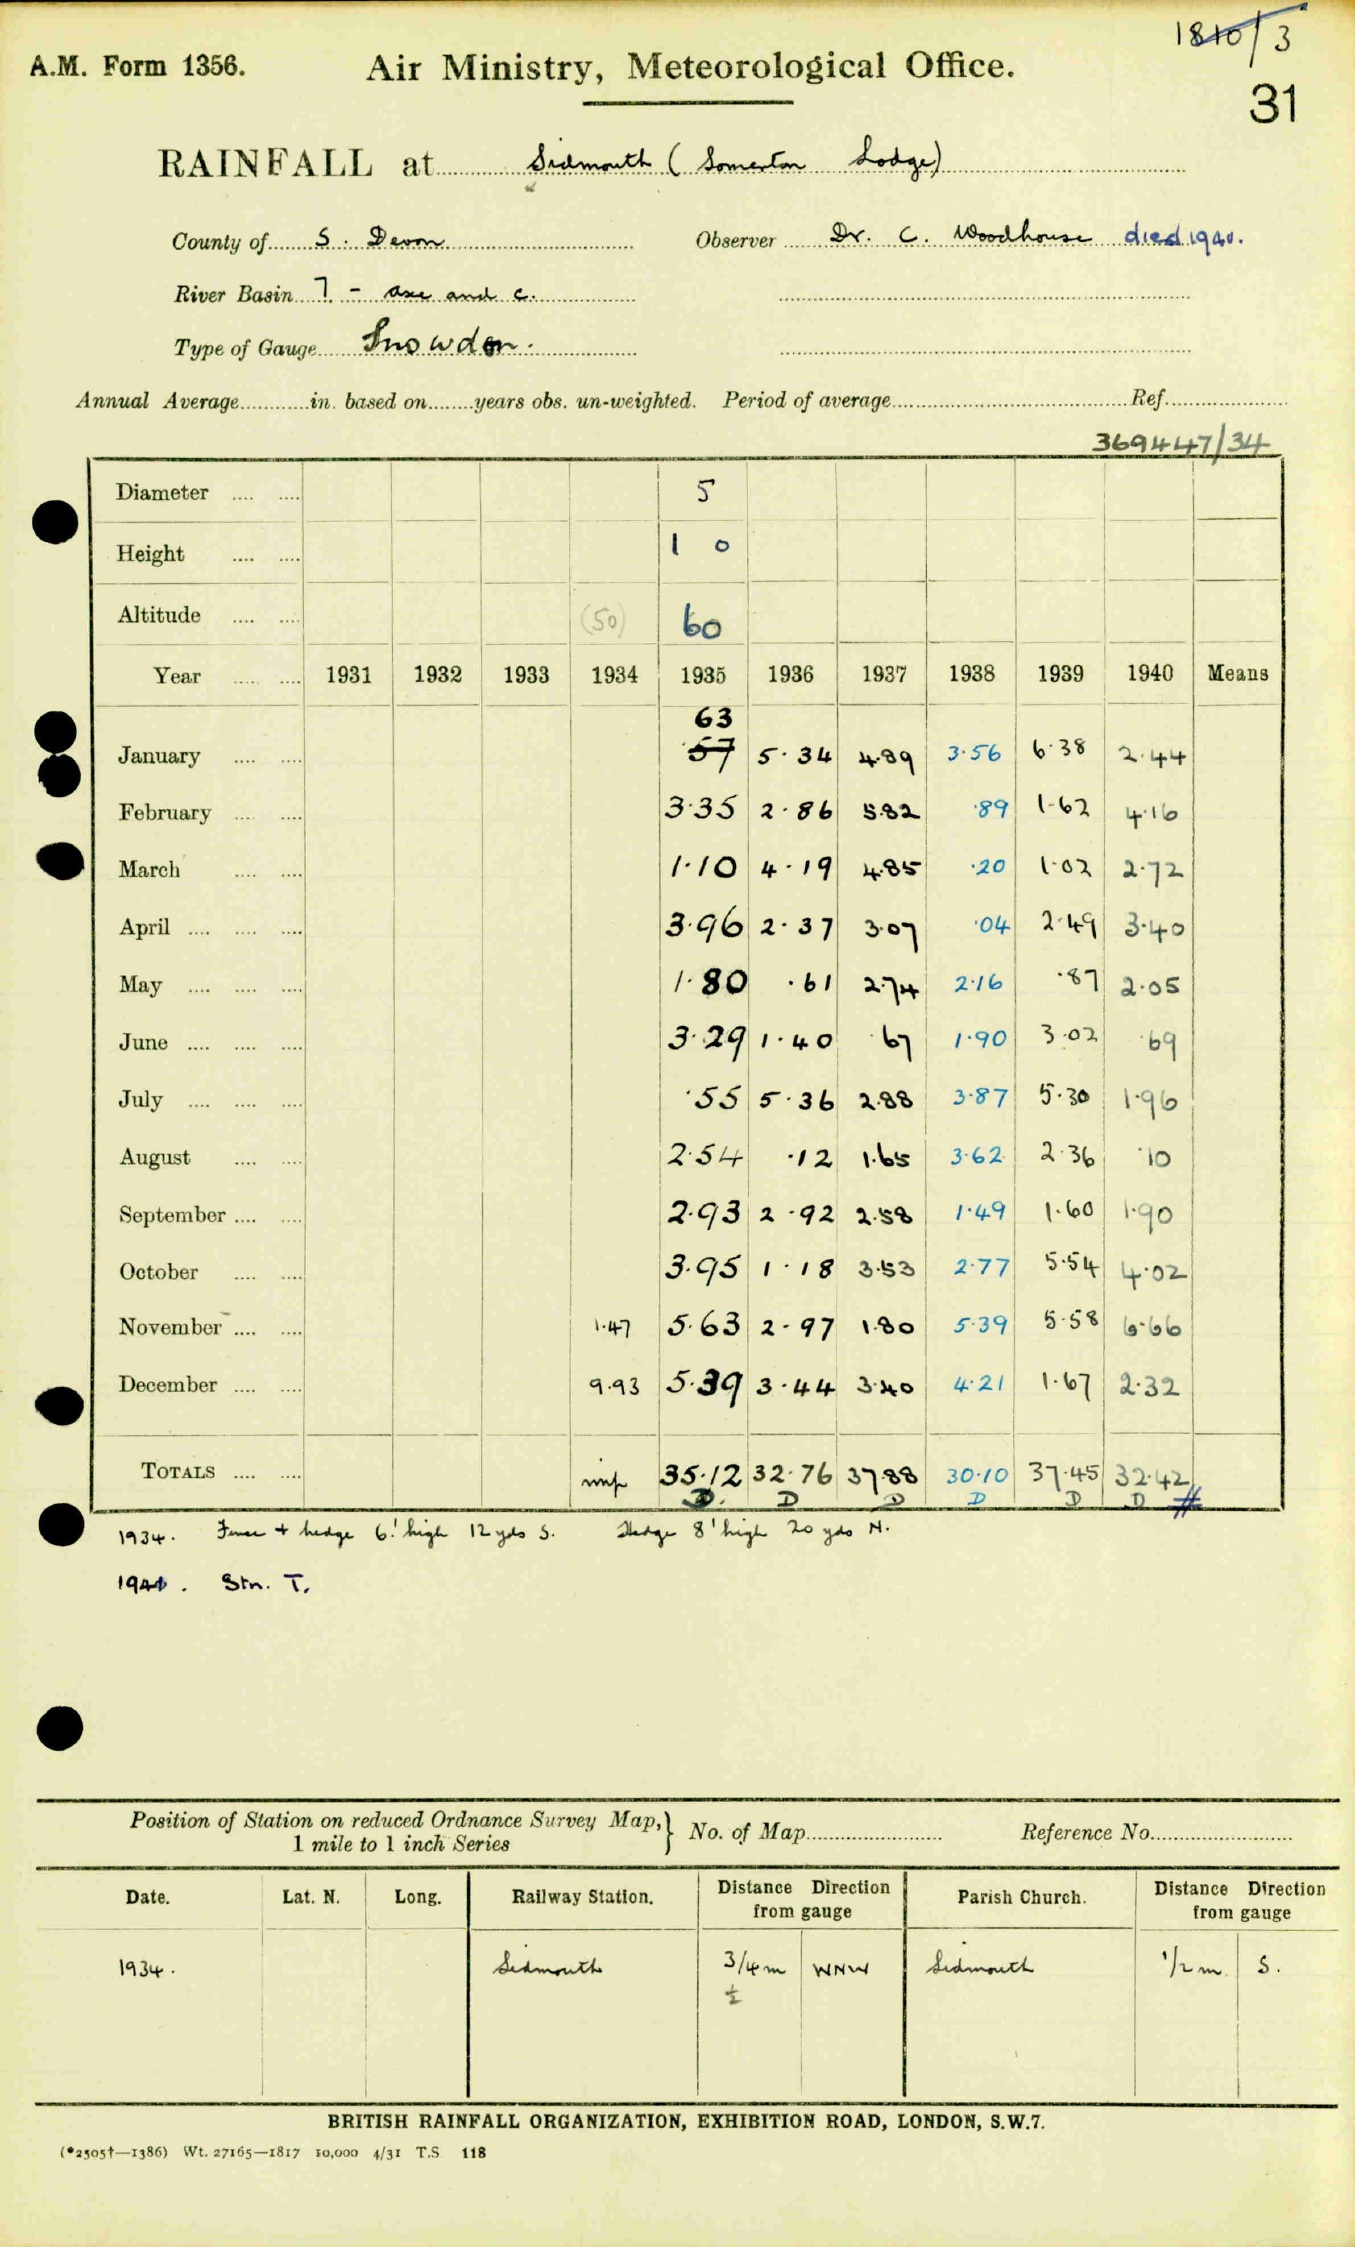 1810/3
31
A.M. Form 1356. Air Ministry, Meteorological Office.
RAINFALL at Sidmouth (Somerton Lodge)
County of S. Devon Observer Dr. C. Woodhouse died 1940.
River Basin 7 - axe and c.
Type of Gauge Snowdon.
Annual Average in. based on years obs. un-weighted. Period of average Ref.
369447/34
Diameter 5
Height 1 0
Altitude (50) 60
Year 1931 1932 1933 1934 1935 1936 1937 1938 1939 1940 Means
63
January ·57 5·34 4·89 3·56 6·38 2·44
February 3·35 2·86 5·82 ·89 1·62 4·16
March 1·10 4·19 4·85 ·20 1·02 2·72
April 3·96 2·37 3·07 ·04 2·49 3·40
May 1·80 ·61 2·74 2·16 ·87 2·05
June 3·29 1·40 ·67 1·90 3·02 ·69
July ·55 5·36 2·88 3·87 5·30 1·96
August 2·54 ·12 1·65 3·62 2·36 ·10
September 2·93 2·92 2·58 1·49 1·60 1·90
October 3·95 1·18 3·53 2·77 5·54 4·02
November 1·47 5·63 2·97 1·80 5·39 5·58 6·66
December 9·93 5·39 3·44 3·40 4·21 1·67 2·32
TOTALS imp 35·12 32·76 37·88 30·10 37·45 32·42
D. D D D D D #
1934. Fence + hedge 6' high 12 yds S. Hedge 8' high 20 yds N.
1941. Stn. T.
Position of Station on reduced Ordnance Survey Map, } No. of Map Reference No.
1 mile to 1 inch Series
Date. Lat. N. Long. Railway Station. Distance Direction from gauge Parish Church. Distance Direction from gauge
1934. Sidmouth 3/4 m WNW Sidmouth 1/2 m. S.
½
BRITISH RAINFALL ORGANIZATION, EXHIBITION ROAD, LONDON, S.W.7.
(*2505†—1386) Wt. 27165—1817 10,000 4/31 T.S 118